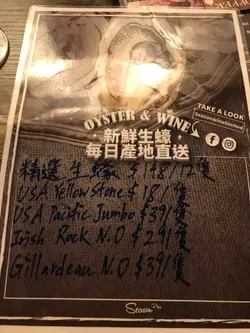 OYSTER & WINE
TAKE A LOOK
Seasonwinelimited
新鮮生蠔，
每日產地直送
精選生蠔 $148/12隻
USA Yellow Stone $18/隻
USA Pacific Jumbo $39/隻
Irish Rock N.O $29/隻
Gillardeau N.O $39/隻
Season Plus